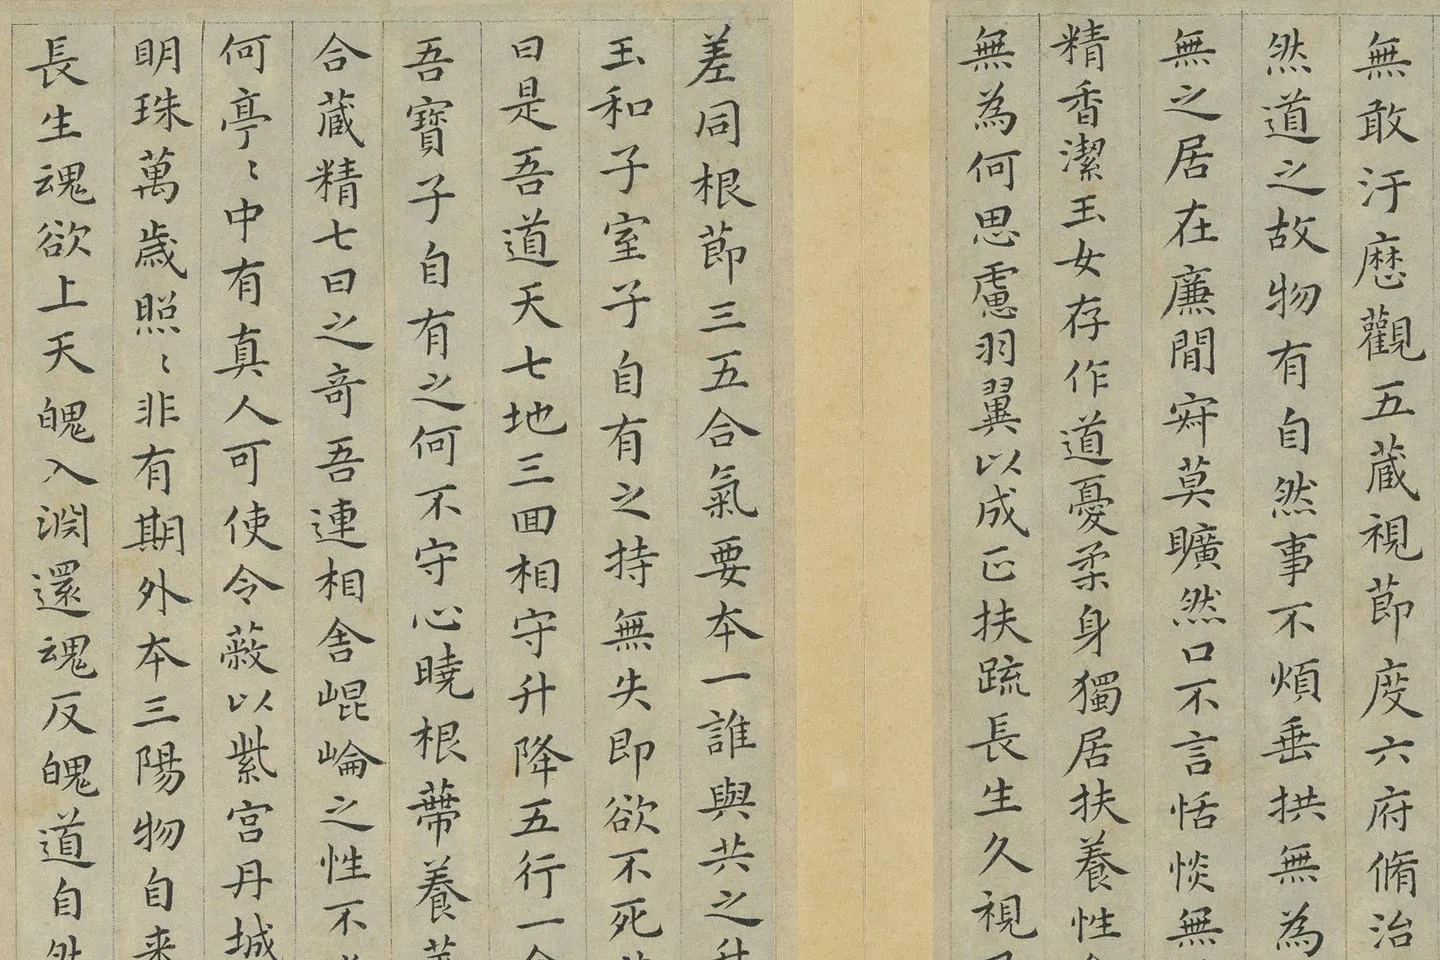 無敢汙歷觀五藏視節度六府脩治
然道之故物有自然事不煩垂拱無為
無之居在廉閒㝛莫曠然口不言恬惔無
精香潔玉女存作道憂柔身獨居扶養性
無為何思慮羽翼以成正扶疏長生久視
差同根節三五合氣要本一誰與共之升
玉和子室子自有之持無失即欲不死
曰是吾道天七地三回相守升降五行一合
吾寶子自有之何不守心曉根蔕養華
合藏精七日之奇吾連相舍崐崘之性不
何亭〻中有真人可使令蔽以紫宮丹城
明珠萬歲照〻非有期外本三陽物自来
長生魂欲上天魄入淵還魂反魄道自然